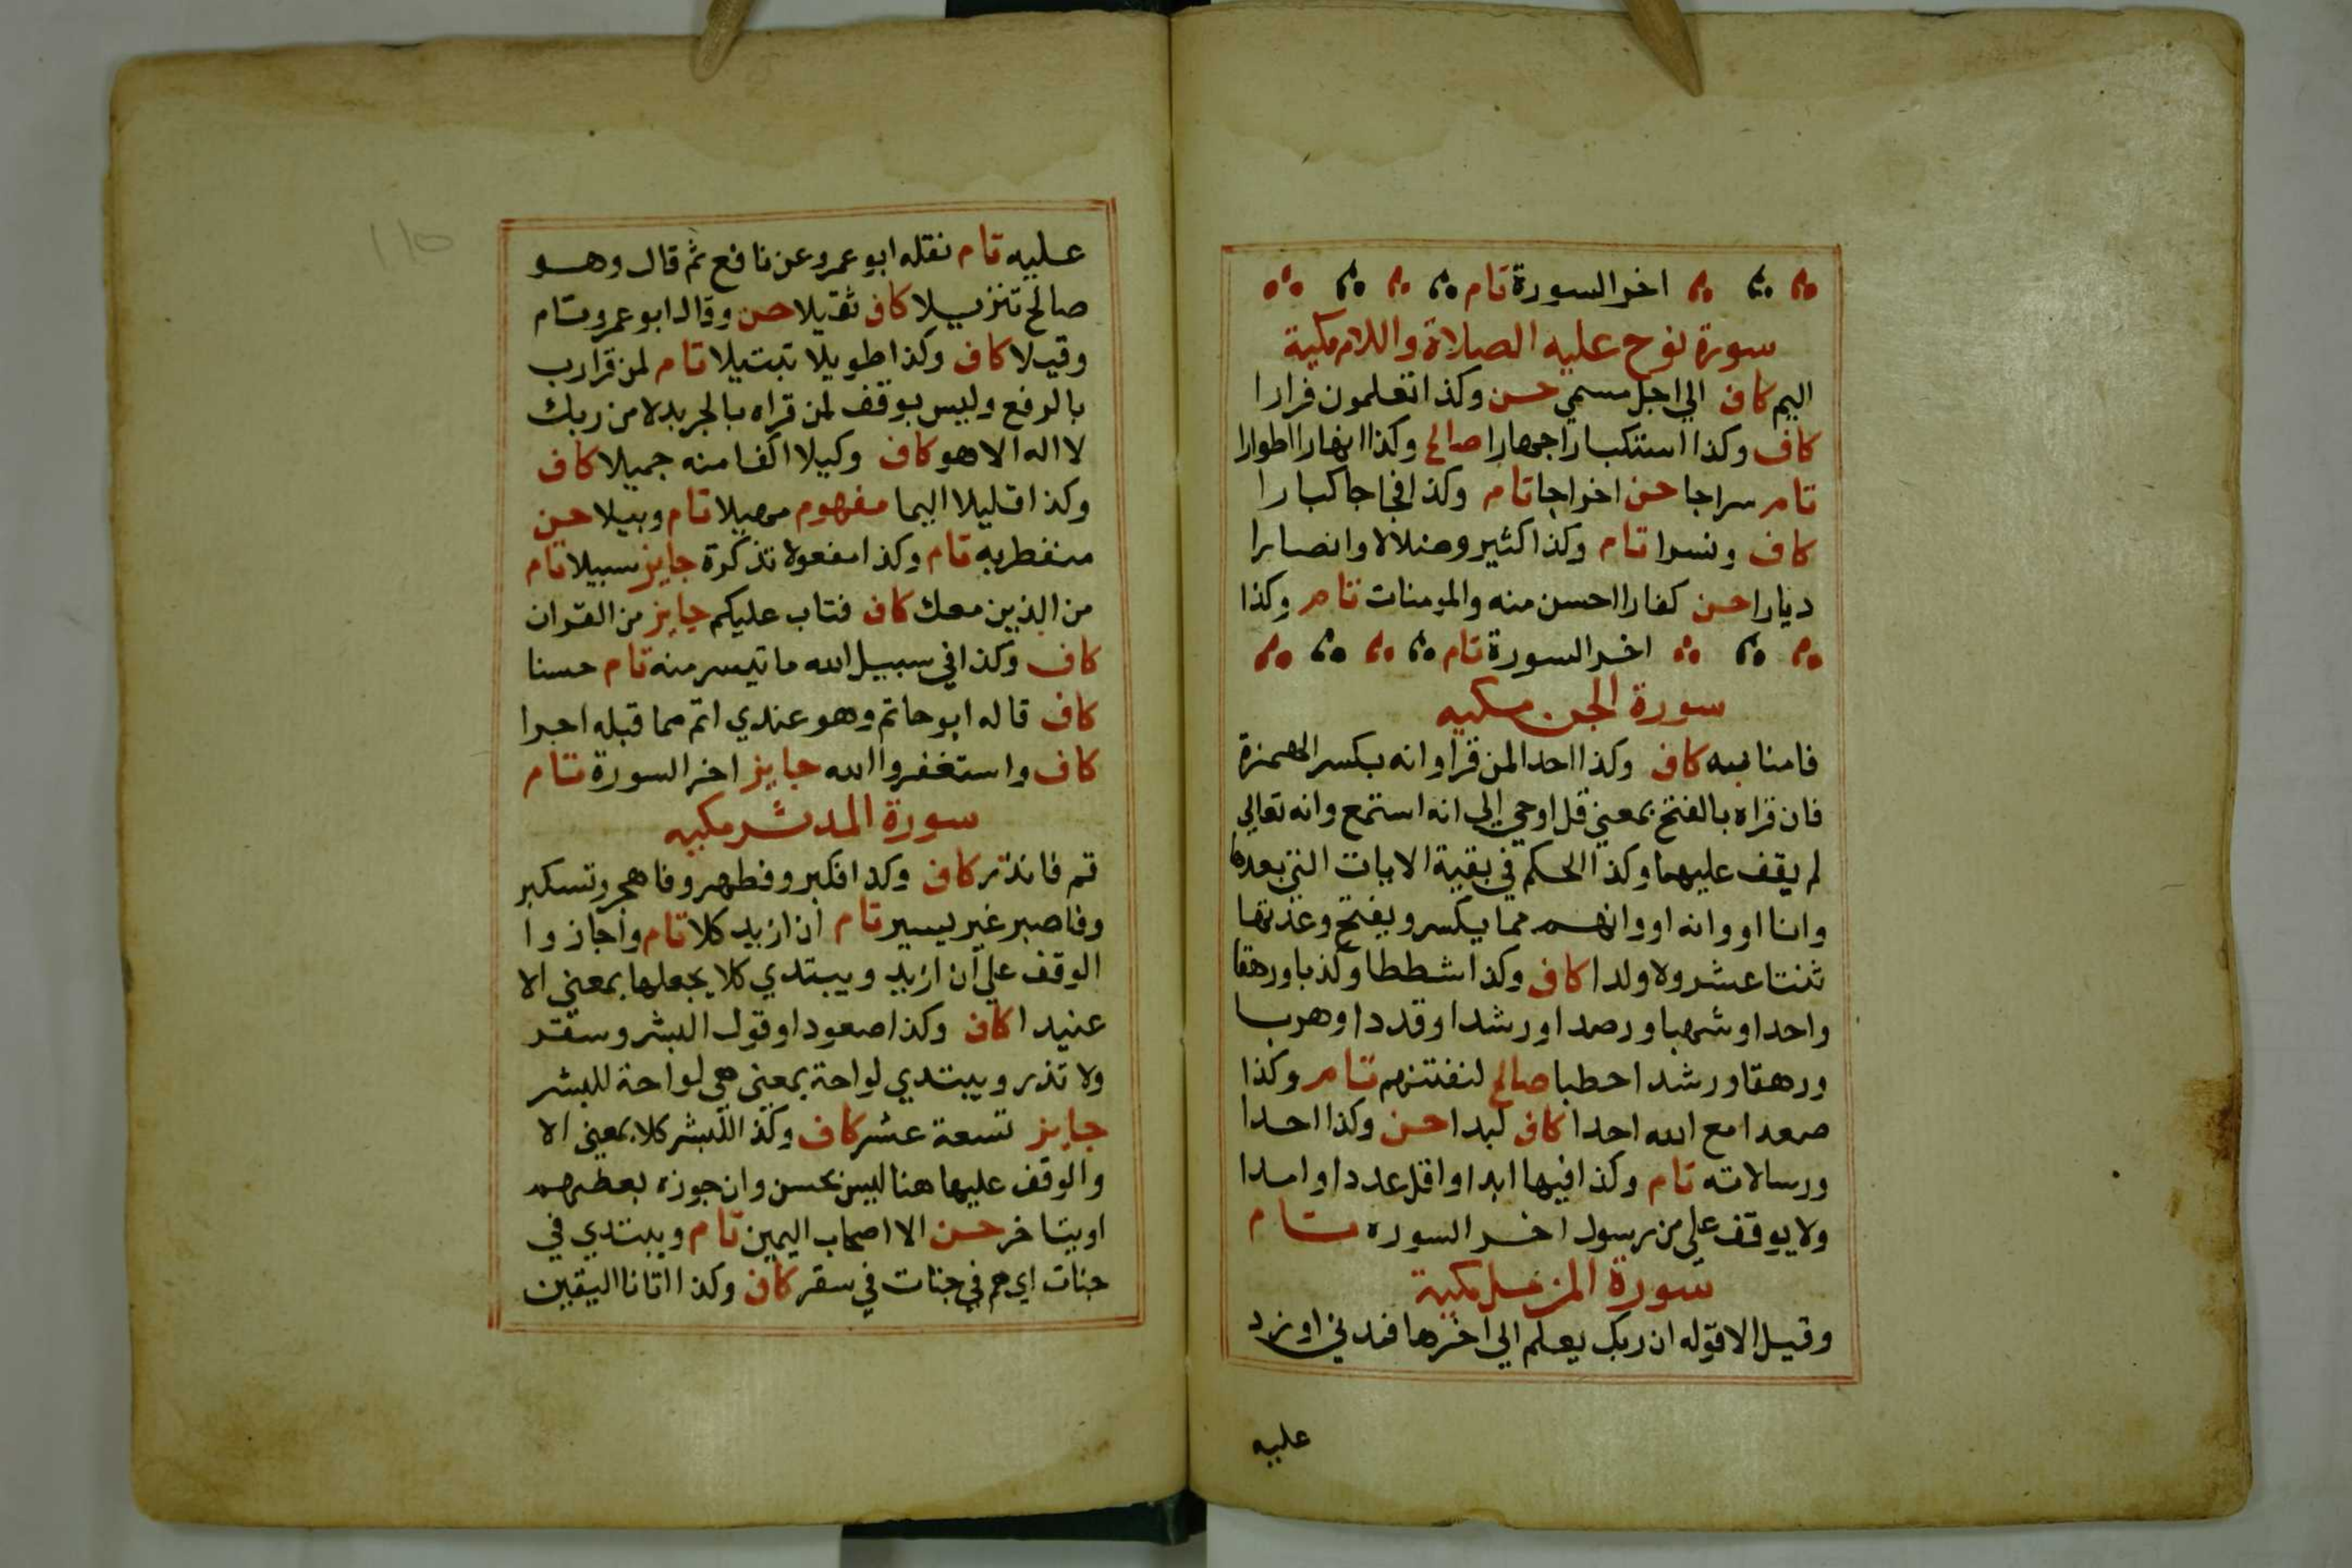 اخر السورة تام
سورة نوح عليه الصلاة والسلام مكية
اليم كاف الي اجل مسمي حسن وكذا تعلمون فرارا
كاف وكذا استكبارا جهارا صالح وكذا انهارا اطوارا
تام سراجا حسن اخراجا تام وكذا فجاجا كبارا
كاف ونسرا تام وكذا كثير وضلالا وانصارا
ديارا حسن كفارا احسن منه والمومنات تام وكذا
اخر السورة تام
سورة الجن مكيه
فامنا به كاف وكذا احدا لمن قرا وانه بكسر الهمزة
فان قراه بالفتح بمعني قل اوحي الي انه استمع وانه تعالي
لم يقف عليهما وكذا الحكم في بقية الايات التي بعدها
وانا او وانه او وانهم مما يكسر ويفتح وعدتها
ثنتا عشر ولا ولدا كاف وكذا شططا وكذبا ورهقا
واحدا وشهبا ورصدا ورشدا وقددا وهربا
ورهقا ورشدا حطبا صالح لنفتنهم تام وكذا
صعدا مع الله احدا كاف لبدا حسن وكذا احدا
ورسالاته تام وكذا فيها ابدا واقل عددا وامدا
ولا يوقف علي من رسول اخر السوره تام
سورة المزمل مكية
وقيل الا قوله ان ربك يعلم الي اخرها فمدني او زد
عليه
110
عليه تام نقله ابو عمرو عن نافع ثم قال وهو
صالح تنزيلا كاف ثقيلا حسن وقال ابو عمرو تام
وقيلا كاف وكذا طويلا تبتيلا تام لمن قرا رب
بالرفع وليس بوقف لمن قراه بالجر بدلا من ربك
لا اله الا هو كاف وكيلا اكفا منه جميلا كاف
وكذا قليلا اليما مفهوم مهيلا تام وبيلا حسن
منفطر به تام وكذا مفعولا تذكرة جايز سبيلا تام
من الذين معك كاف فتاب عليكم جايز من القران
كاف وكذا في سبيل الله ما تيسر منه تام حسنا
كاف قاله ابو حاتم وهو عندي اتم مما قبله اجرا
كاف واستغفروا الله جايز اخر السورة تام
سورة المدثر مكيه
قم فانذر كاف وكذا فكبر وفطهر وفاهجر وتستكبر
وفاصبر غير يسير تام ان ازيد كلا تام واجازوا
الوقف علي ان ازيد ويبتدي كلا يجعلها بمعني الا
عنيدا كاف وكذا صعودا وقول البشر وسقر
ولا تذر ويبتدي لواحة بمعني هي لواحة للبشر
جايز تسعة عشر كاف وكذا للبشر كلا بمعني الا
والوقف عليها هنا ليس بحسن وان جوزه بعضهم
او يتاخر حسن الا اصحاب اليمين تام ويبتدي في
جنات اي هم في جنات في سقر كاف وكذا اتانا اليقين